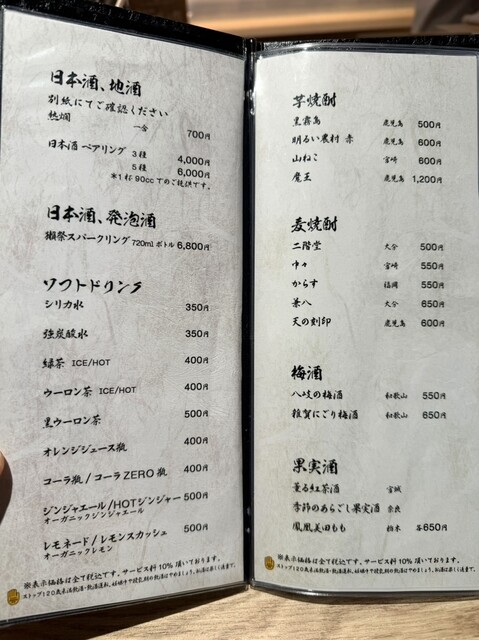 日本酒、地酒
別紙にてご確認ください
熱燗 一合 700円
日本酒 ペアリング 3種 4,000円
5種 6,000円
＊1杯90ccでのご提供です。
日本酒、発泡酒
獺祭スパークリング 720ml ボトル 6,800円
ソフトドリンク
シリカ水 350円
強炭酸水 350円
緑茶 ICE/HOT 400円
ウーロン茶 ICE/HOT 400円
黒ウーロン茶 500円
オレンジジュース瓶 400円
コーラ瓶/コーラZERO瓶 400円
ジンジャエール/HOTジンジャー 500円
オーガニックジンジャエール
レモネード/レモンスカッシュ 500円
オーガニックレモン
※表示価格は全て税込です。サービス料10%頂いております。
ストップ!20歳未満飲酒・飲酒運転。妊娠中や授乳期の飲酒はやめましょう。
芋焼酎
黒霧島 鹿児島 500円
明るい農村 赤 鹿児島 600円
山ねこ 宮崎 600円
魔王 鹿児島 1,200円
麦焼酎
二階堂 大分 500円
中々 宮崎 550円
からす 福岡 550円
兼八 大分 650円
天の刻印 鹿児島 600円
梅酒
八岐の梅酒 和歌山 550円
雑賀にごり梅酒 和歌山 650円
果実酒
薫る紅茶酒 宮城
季節のあらごし果実酒 奈良
鳳凰美田もも 栃木 各650円
※表示価格は全て税込です。サービス料10%頂いております。
ストップ!20歳未満飲酒・飲酒運転。妊娠中や授乳期の飲酒はやめましょう。